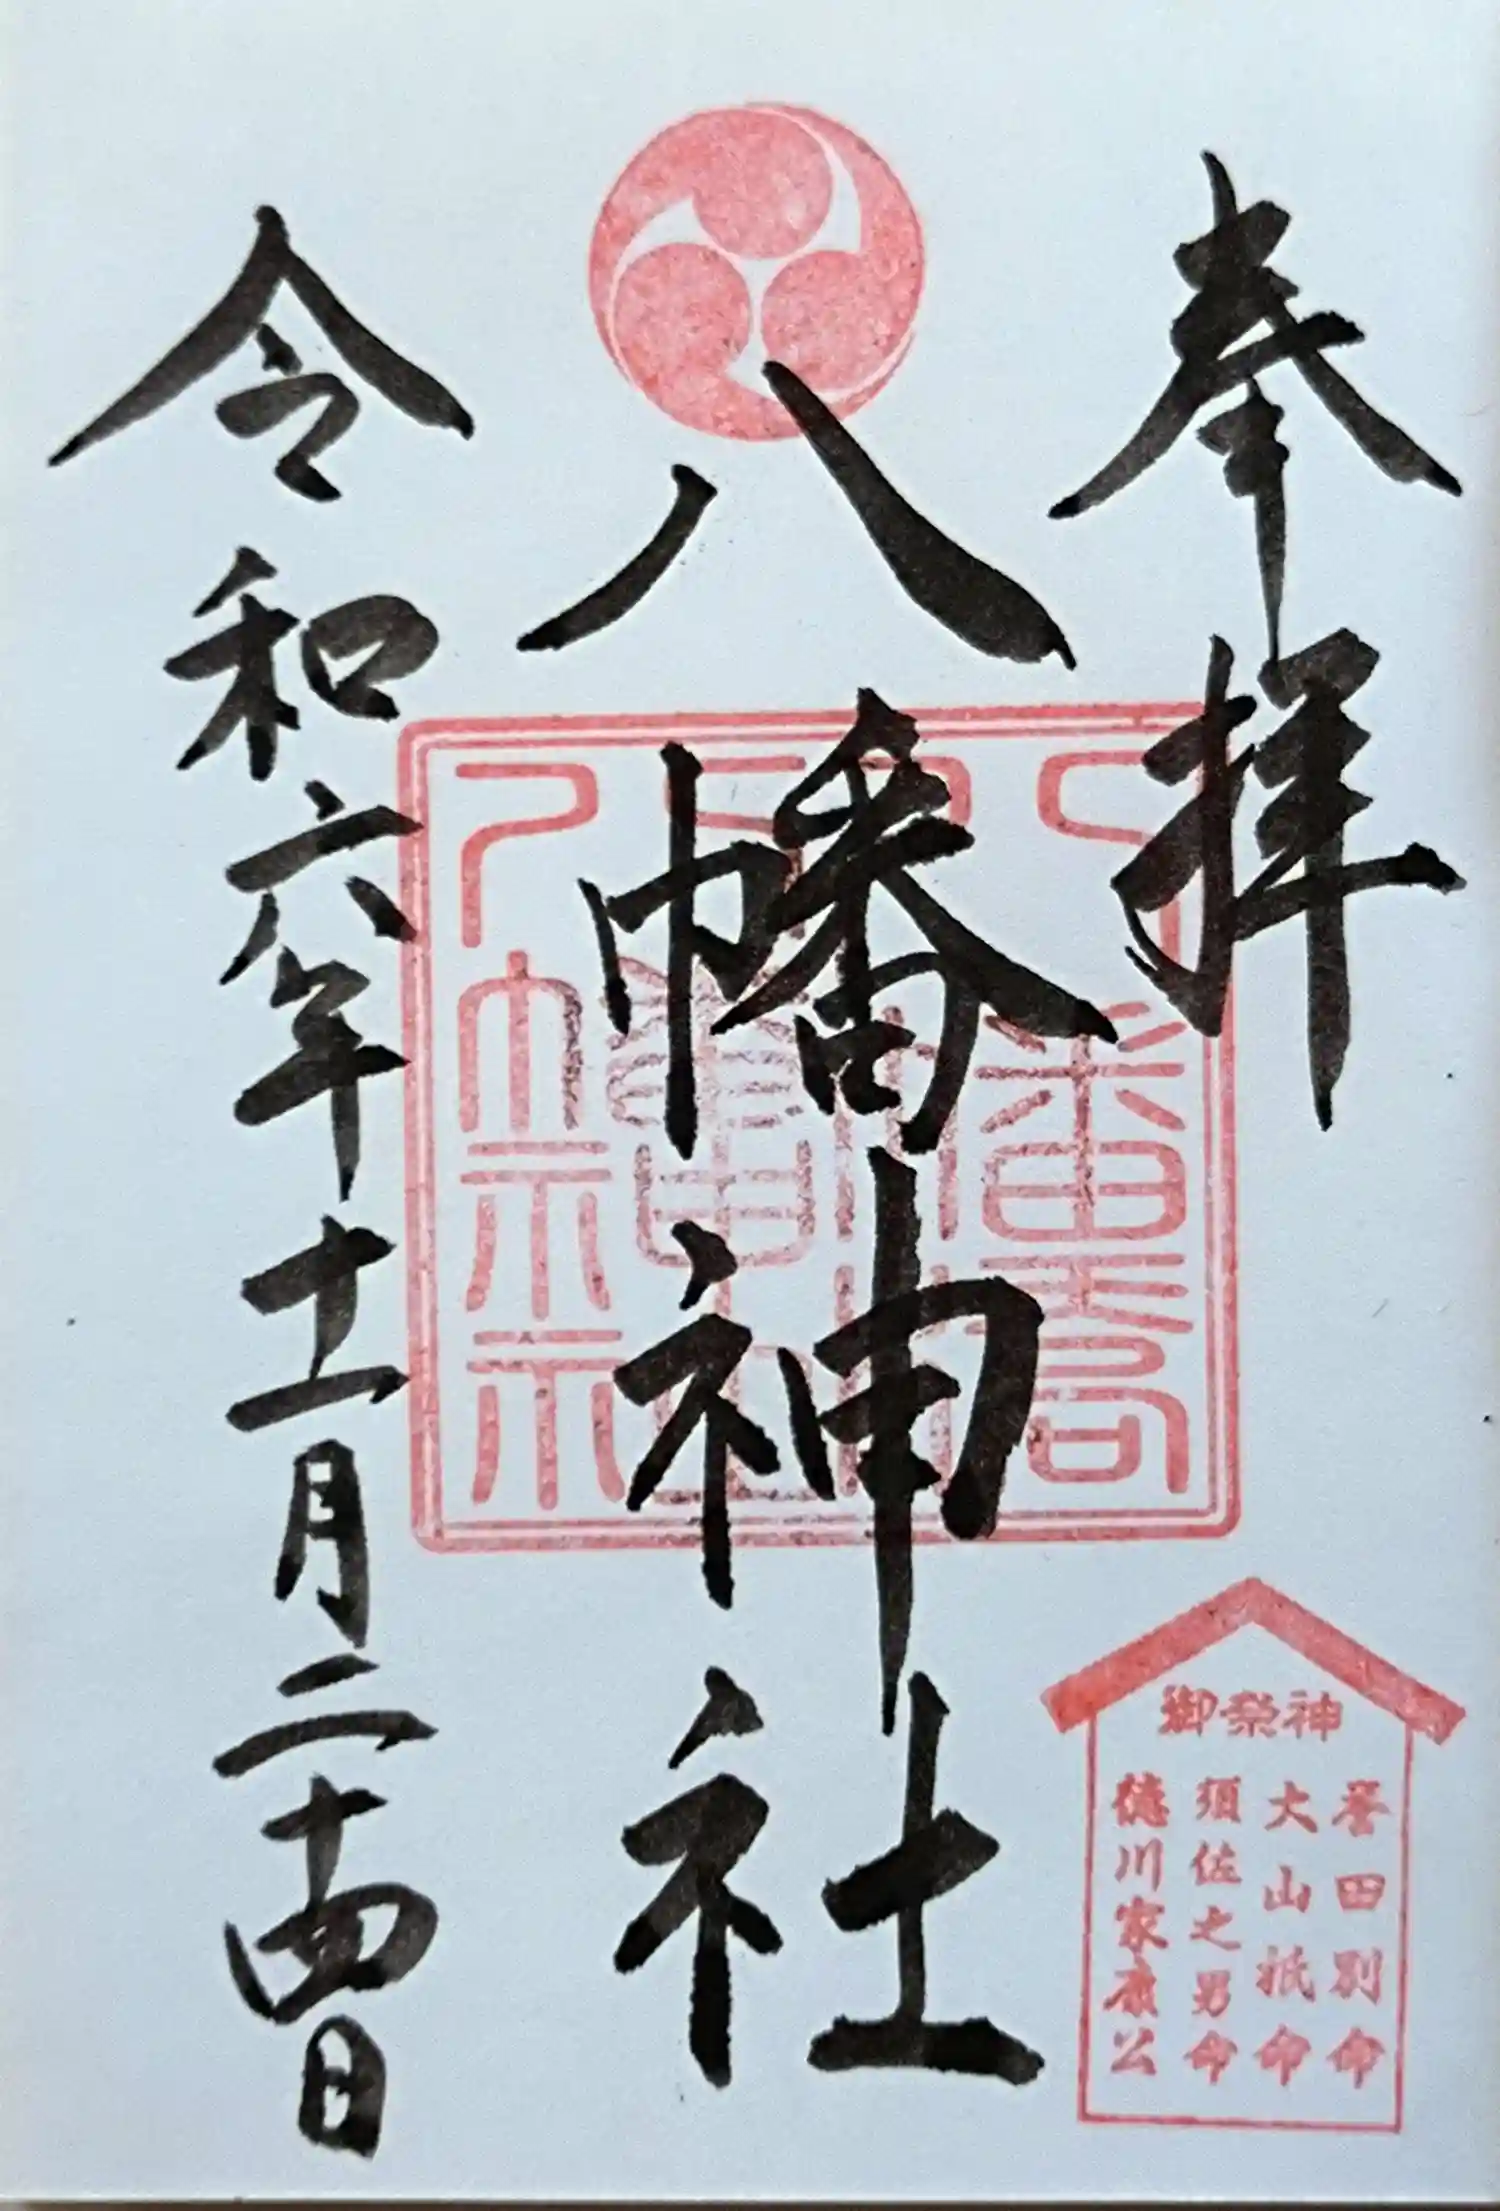 奉拝
八幡神社
令和六年十一月二十四日
御祭神
誉田別命
大山祇命
須佐之男命
徳川家康公